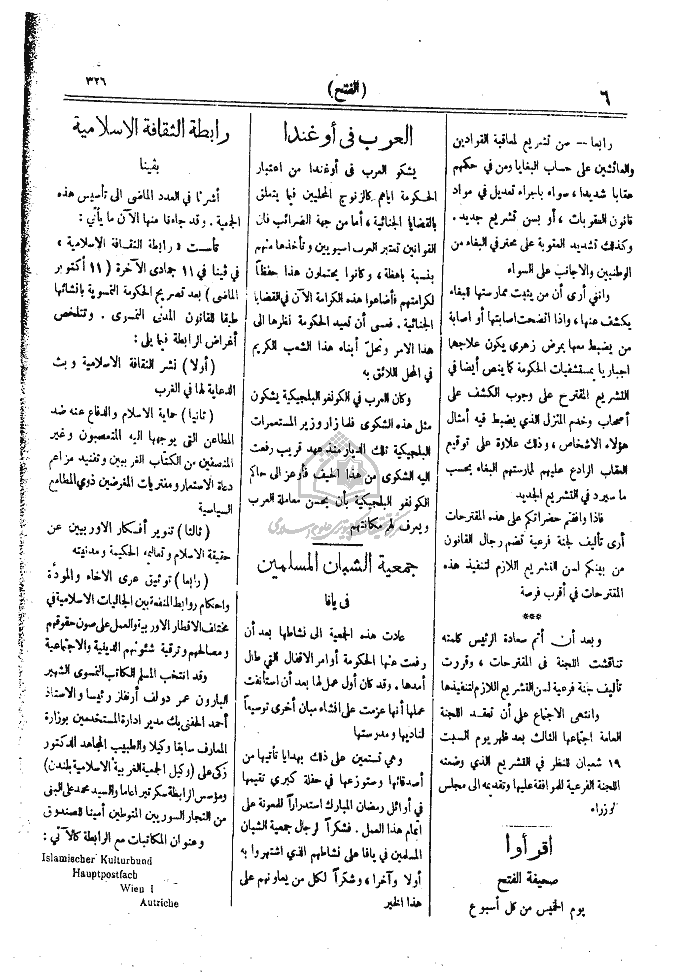 ٦
(الفتح)
٣٢٦
رابعا — سن تشريع لمعاقبة القوادين
والعائشين على حساب البغايا ومن في حكمهم
عقابا شديدا، سواء باجراء تعديل في مواد
قانون العقوبات ، أو بسن تشريع جديد .
وكذلك تشديد العقوبة على محترفي البغاء من
الوطنيين والاجانب على السواء
وانني أرى أن من يثبت ممارستها للبغاء
يكشف عنها، واذا اتضحت اصابتها أو اصابة
من يضبط معها بمرض زهري يكون علاجها
اجباريا بمستشفيات الحكومة كما ينص أيضا في
التشريع المقترح على وجوب الكشف على
أصحاب وخدم المنزل الذي يضبط فيه أمثال
هؤلاء الاشخاص ، وذلك علاوة على توقيع
العقاب الرادع عليهم لممارستهم البغاء بحسب
ما سيرد في التشريع الجديد
فاذا وافقتم حضراتكم على هذه المقترحات
أرى تأليف لجنة فرعية تضم رجال القانون
من بينكم لسن التشريع اللازم لتنفيذ هذه
المقترحات في أقرب فرصة
***
وبعد أن أتم سعادة الرئيس كلمته
تناقشت اللجنة فى المقترحات ، وقررت
تأليف لجنة فرعية لسن التشريع اللازم لتنفيذها
وانتهى الاجتماع على أن تعقد اللجنة
العامة اجتماعها الثالث بعد ظهر يوم السبت
١٩ شعبان للنظر في التشريع الذي وضعته
اللجنة الفرعية للموافقة عليها وتقديمه الى مجلس
لوزراء
أقرأوا
صحيفة الفتح
يوم الخميس من كل أسبوع
العرب فى أوغندا
يشكو العرب فى أوغندا من اعتبار
الحكومة اياهم كالزنوج المحليين فيما يتعلق
بالقضايا الجنائية ، أما من جهة الضرائب فان
القوانين تعتبر العرب اسيويين وتأخذها منهم
بنسبة باهظة ، وكانوا يحتملون هذا حفظاً
لكرامتهم فأضاعوا هذه الكرامة الآن في القضايا
الجنائية . فعسى أن تعيد الحكومة نظرها الى
هذا الامر وتحل أبناء هذا الشعب الكريم
في المحل اللائق به
وكان العرب في الكونغو البلجيكية يشكون
مثل هذه الشكوى فلما زار وزير المستعمرات
البلجيكية تلك الديار منذ عهد قريب رفعت
اليه الشكوى من هذا الحيف فأوعز الى حاكم
الكونغو البلجيكية بأن يحسن معاملة العرب
ويعرف لهم مكانتهم
جمعية الشبان المسلمين
فى يافا
عادت هذه الجمعية الى نشاطها بعد أن
رفعت عنها الحكومة أوامر الاقفال التي طال
أمدها . وقد كان أول عمل لها بعد أن استأنفت
عملها أنها عزمت على انشاء مبان أخرى توسيعاً
لناديها ومدرستها
وهي تستعين على ذلك بهدايا تأتيها من
أصدقائها وستوزعها في حفلة كبرى تقيمها
في أوائل رمضان المبارك استدراراً للمعونة على
اتمام هذا العمل . فشكراً لرجال جمعية الشبان
المسلمين في يافا على نشاطهم الذي اشتهروا به
أولا وآخرا ، وشكراً لكل من يعاونهم على
هذا الخير
رابطة الثقافة الاسلامية
بڤينا
أشرنا في العدد الماضى الى تأسيس هذه
الجمعية . وقد جاءنا منها الآن ما يأتي :
تأسست « رابطة الثقافة الاسلامية »
في ڤينا في ١١ جمادى الآخرة ( ١١ أكتوبر
الماضى ) بعد تصريح الحكومة النمسوية بانشائها
طبقا للقانون المدنى النمسوى . وتتلخص
أغراض الرابطة فيما يلى :
( أولا ) نشر الثقافة الاسلامية و بث
الدعاية لها في الغرب
( ثانيا ) حماية الاسلام والدفاع عنه ضد
المطاعن التى يوجهها اليه المتعصبون وغير
المنصفين من الكتاب الغربيين وتفنيد مزاعم
دعاة الاستعمار ومفتريات المغرضين ذوي المطامع
السياسية
( ثالثا ) تنوير أفكار الاوربيين عن
حقيقة الاسلام وتعاليمه الحكيمة ومدنيته
( رابعا ) توثيق عرى الاخاء والمودة
واحكام روابط المنفعة بين الجاليات الاسلامية في
مختلف الاقطار الاوربية والعمل على صون حقوقهم
ومصالحهم وترقية شئونهم الدينية والاجتماعية
وقد انتخب المسلم الكاتب النمسوى الشهير
البارون عمر دولف أرنفلز رئيسا والاستاذ
أحمد الحفنى بك مدير ادارة المستخدمين بوزارة
المعارف سابقا وكيلا والطبيب المجاهد الدكتور
زكى على ( وكيل الجمعية الغربية الاسلامية بلندن )
ومؤسس الرابطة سكرتيرا عاما والسيد محمد على البنى
من التجار السوريين المتوطنين أمينا للصندوق
وعنوان المكاتبات مع الرابطة كالآتي :
Islamischer Kulturbund
Hauptpostfach
Wien I
Autriche